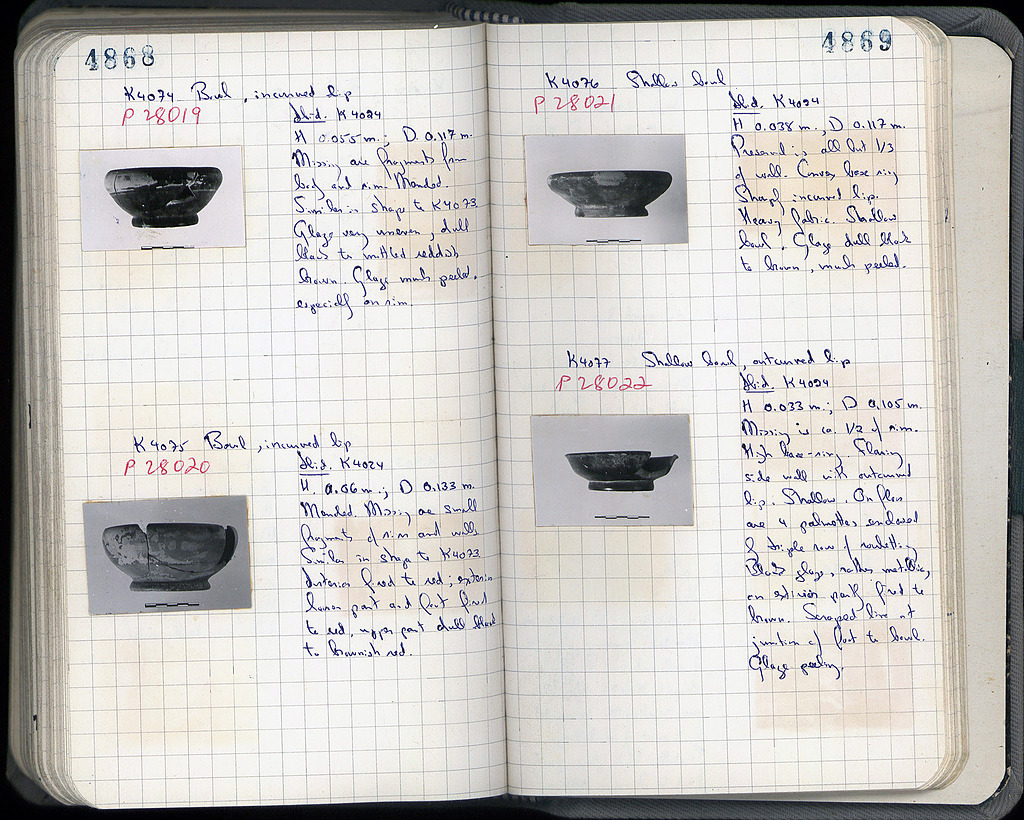 4868
K4074 Bowl, incurved lip
P 28019
Ibid. K 4024
H 0.055 m.; D 0.117 m.
Missing are fragments from
body and rim. Mended.
Similar in shape to K4073.
Glaze very uneven, dull
black to mottled reddish
brown. Glaze much peeled,
especially on rim.
K4075 Bowl, incurved lip
P 28020
Ibid. K4024
H. 0.06 m.; D 0.133 m.
Mended. Missing are small
fragments of rim and wall.
Similar in shape to K4073.
Interior fired to red; exterior
lower part and foot fired
to red, upper part dull black
to brownish red.
4869
K4076 Shallow bowl
P 28021
Ibid. K4024
H 0.038 m., D 0.117 m.
Preserved is all but 1/3
of wall. Convex base ring
Sharply incurved lip.
Heavy fabric. Shallow
bowl. Glaze dull black
to brown, much peeled.
K4077 Shallow bowl, outcurved lip
P 28022
Ibid. K4024
H 0.033 m.; D 0.105 m.
Missing is ca. 1/2 of rim.
High base-ring. Flaring
side wall with outcurved
lip. Shallow. On floor
are 4 palmettes enclosed
by triple row of rouletting.
Black glaze, rather metallic,
on exterior partly fired to
brown. Scraped line at
junction of foot to bowl.
Glaze peeling.